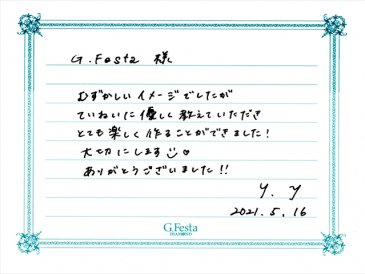 G.Festa 様
むずかしいイメージでしたが
ていねいに優しく教えていただき
とても楽しく作ることができました!
大切にします
ありがとうございました!!
Y.Y
2021.5.16
G.Festa
DIAMOND